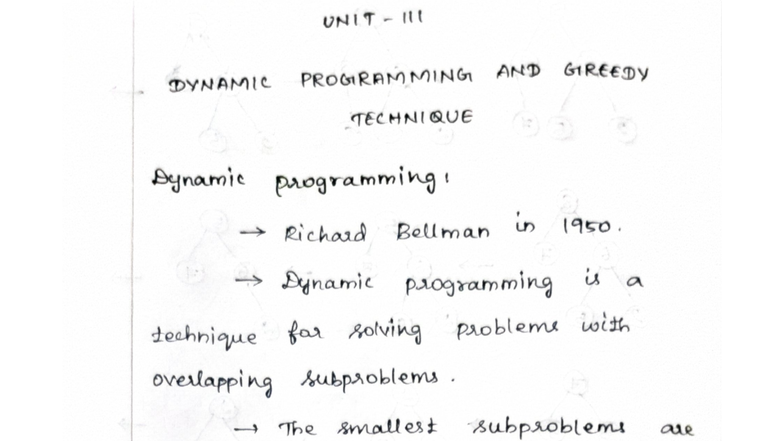 UNIT - III
DYNAMIC PROGRAMMING AND GREEDY
TECHNIQUE
Dynamic programming:
→ Richard Bellman in 1950.
→ Dynamic programming is a
technique for solving problems with
overlapping subproblems.
→ The smallest subproblems are